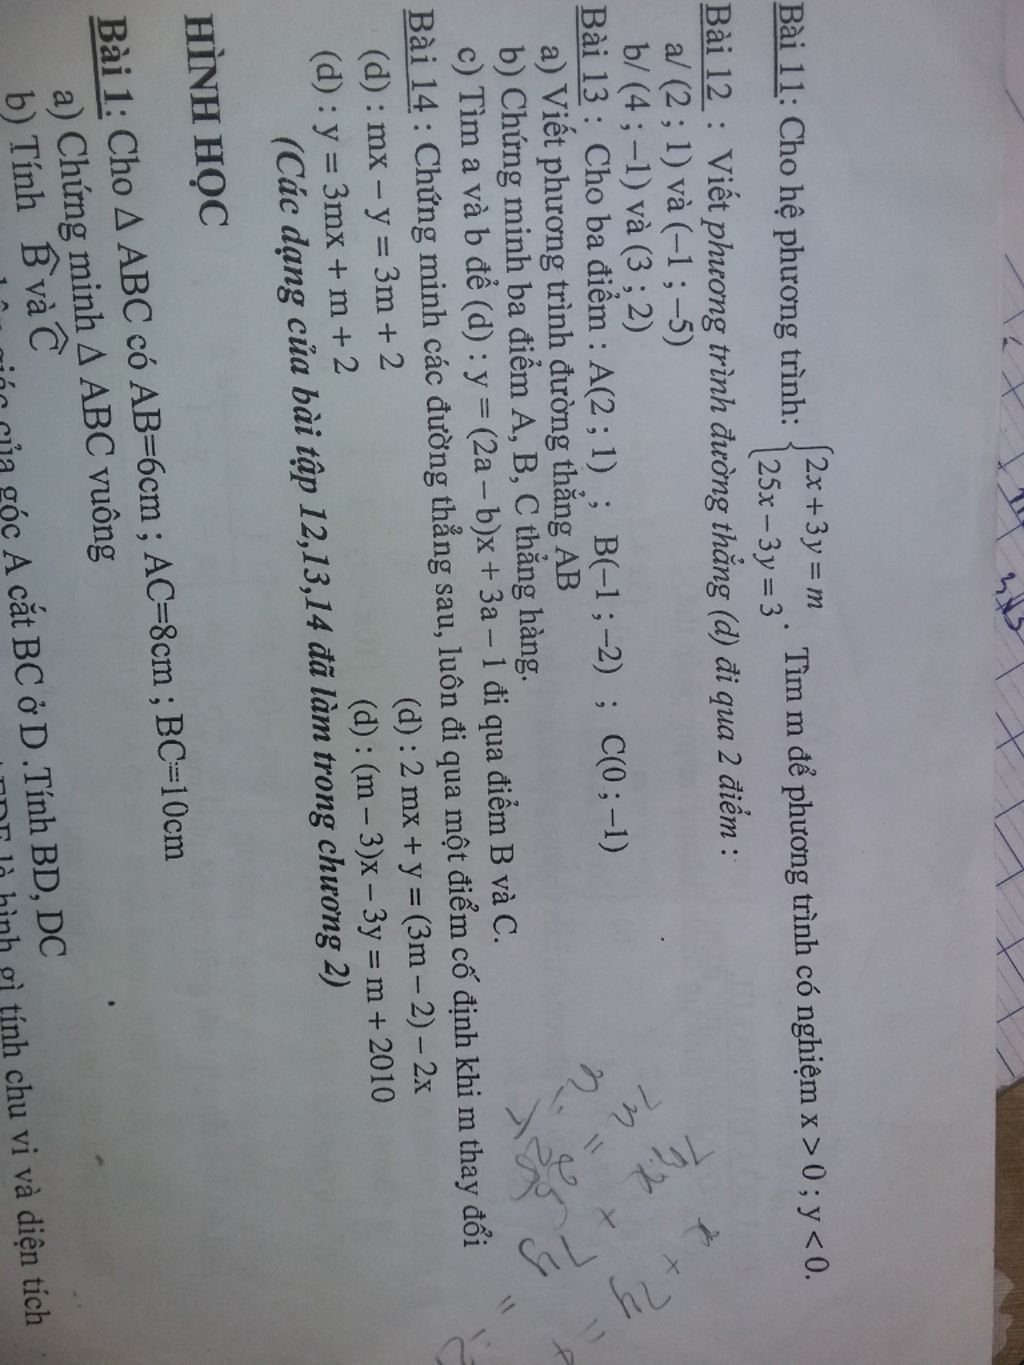 Bài 11: Cho hệ phương trình: { 2x + 3y = m
25x − 3y = 3 . Tìm m để phương trình có nghiệm x > 0 ; y < 0.
Bài 12 : Viết phương trình đường thẳng (d) đi qua 2 điểm :
a/ (2 ; 1) và (−1 ; −5)
b/ (4 ; −1) và (3 ; 2)
Bài 13 : Cho ba điểm : A(2 ; 1) ; B(−1 ; −2) ; C(0 ; −1)
a) Viết phương trình đường thẳng AB
b) Chứng minh ba điểm A, B, C thẳng hàng.
c) Tìm a và b để (d) : y = (2a − b)x + 3a − 1 đi qua điểm B và C.
Bài 14 : Chứng minh các đường thẳng sau, luôn đi qua một điểm cố định khi m thay đổi
(d) : mx − y = 3m + 2 (d) : 2 mx + y = (3m − 2) − 2x
(d) : y = 3mx + m + 2 (d) : (m − 3)x − 3y = m + 2010
(Các dạng của bài tập 12,13,14 đã làm trong chương 2)
HÌNH HỌC
Bài 1: Cho Δ ABC có AB=6cm ; AC=8cm ; BC=10cm
a) Chứng minh Δ ABC vuông
b) Tính B̂ và Ĉ
giác của góc A cắt BC ở D .Tính BD, DC
là hình gì tính chu vi và diện tích